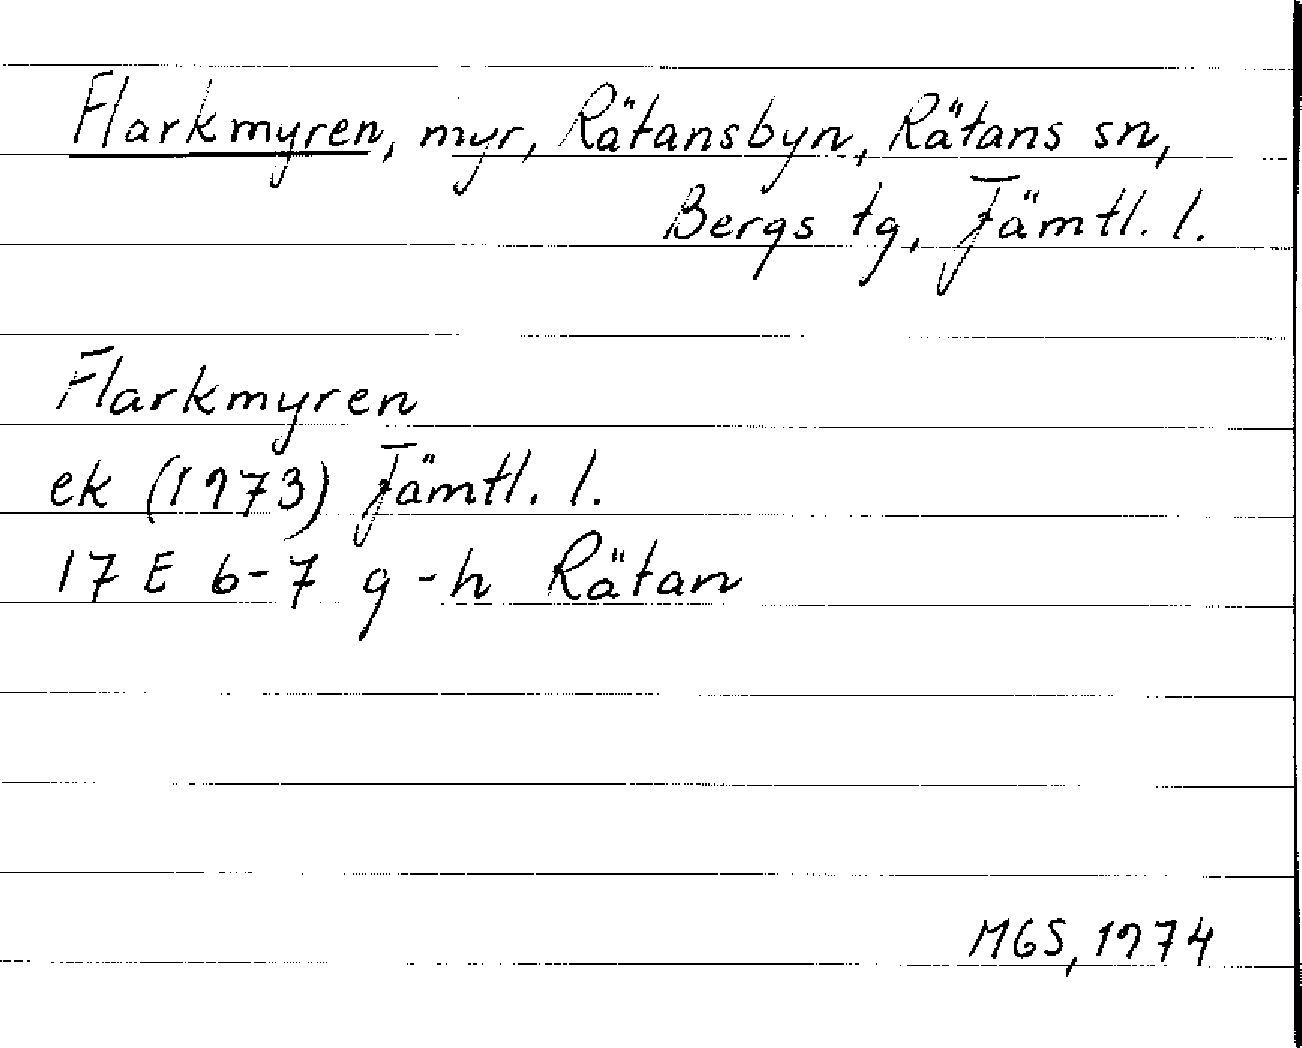 Flarkmyren, myr, Rätansbyn, Rätans sn,
Bergs tg, Jämtl. l.
Flarkmyren
ek (1973) Jämtl. l.
17 E 6-7 g-h Rätan
MGS, 1974